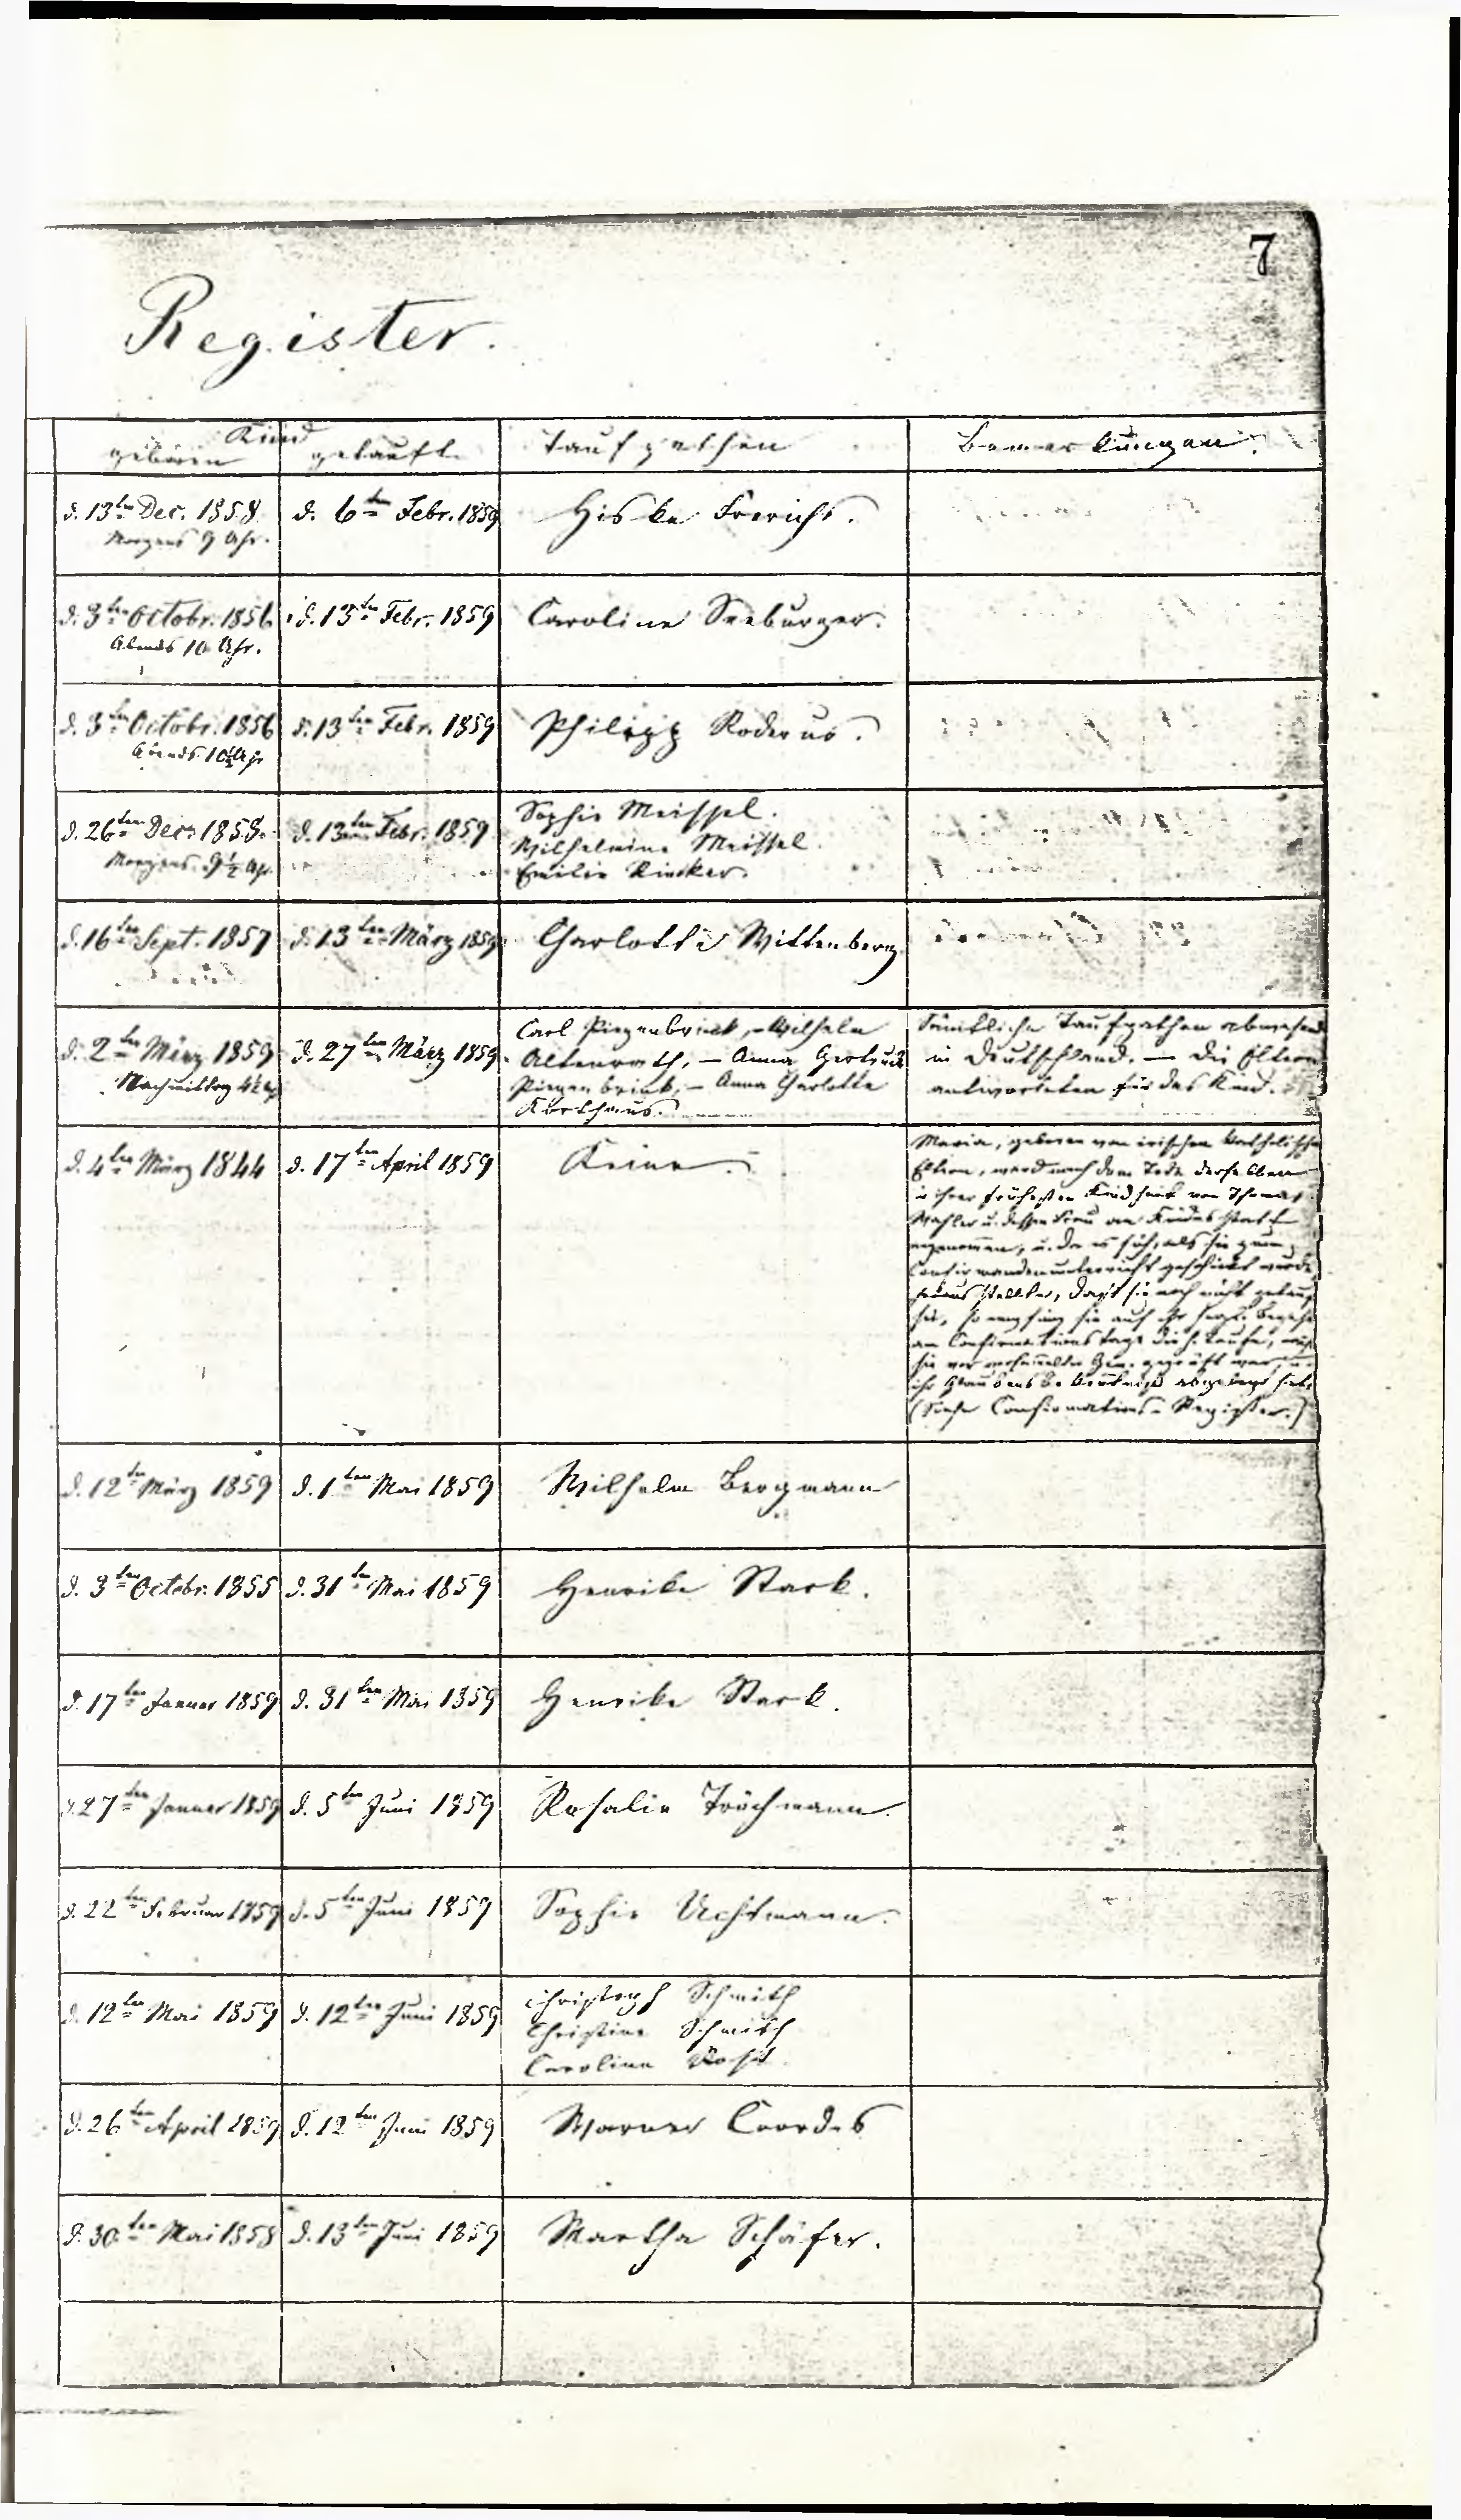 7
Register.
Kind
geboren getauft. Taufpathen Bemerkungen.
d. 13ten Dec. 1858. d. 6ten Febr. 1859 Hiske Frerichs.
Morgens 9 Uhr.
d. 3ten Octobr. 1856 d. 13ten Febr. 1859 Caroline Seeburger.
Abends 10 Uhr.
d. 3ten Octobr. 1856 d. 13ten Febr. 1859 Philipp Roderus.
Abends 10½ Uhr
d. 26ten Decr. 1858. d. 13ten Febr. 1859 Sophie Meissel.
Morgens 9½ Uhr Wilhelmine Meissel.
Emilie Rincker.
d. 16ten Sept. 1857 d. 13ten März 1859 Charlotte Wittenberg
d. 2ten März 1859 d. 27ten März 1859. Carl Piepenbrink, – Wilhelm
Nachmittag 4½ Uhr Altenrath, – Anna Gertrud
Piepenbrink, – Anna Charlotte
Korthaus.
Sämtliche Taufpathen abwesend
in Deutschland. – Die Eltern
antworteten für das Kind.
d. 4ten März 1844 d. 17ten April 1859 Keine.
Maria, geboren von irischen katholischen
Eltern, ward nach dem Tode derselben
in ihrer frühesten Kindheit von Thomas
Mahler u. dessen Frau an Kindes statt
angenommen, u. da es sich, als sie zum
Confirmandenunterricht geschickt wurde
heraus stellte, daß sie noch nicht getauft
sei, so empfing sie auf ihr
am Confirmationstage die h. Taufe,
sie vor versammelter Gem. geprüft war, u.
ihr Glaubensbekenntniß abgelegt hatte
(Siehe Confirmations-Register.)
d. 12ten März 1859 d. 1ten Mai 1859 Wilhelm Bergmann
d. 3ten Octobr. 1855 d. 31ten Mai 1859 Henrike Stark.
d. 17ten Januar 1859 d. 31ten Mai 1859 Henrike Stark.
d. 27ten Januar 1859 d. 5ten Juni 1859 Rosalie Tröchmann.
d. 22ten Februar 1859 d. 5ten Juni 1859 Sophie Uchtmann.
d. 12ten Mai 1859 d. 12ten Juni 1859 Christoph Schmith
Christine Schmith
Caroline
d. 26ten April 1859 d. 12ten Juni 1859 Warner Coordes
d. 30ten Mai 1858 d. 13ten Juni 1859 Martha Schäfer.